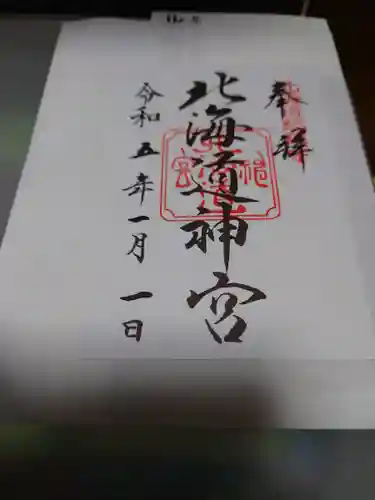 奉拝
北海道神宮
令和五年一月一日